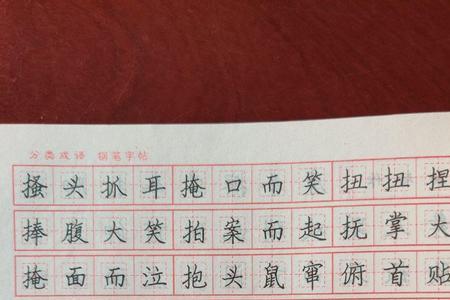 分类成语 钢笔字帖
搔头抓耳掩口而笑扭扭捏
捧腹大笑拍案而起抚掌大
掩面而泣抱头鼠窜俯首贴